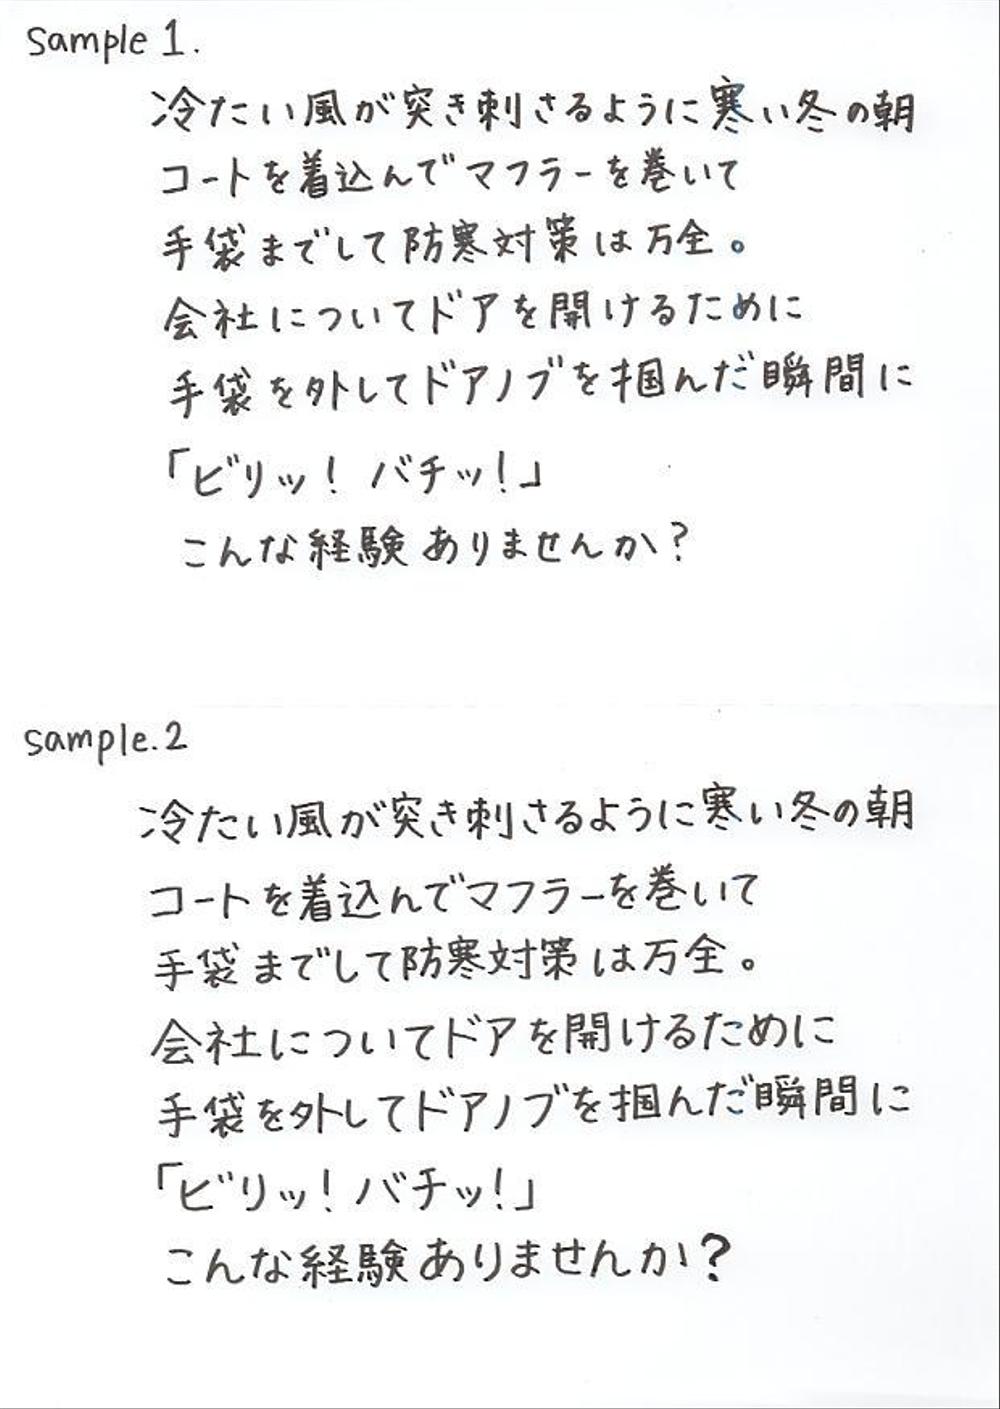 sample 1.
冷たい風が突き刺さるように寒い冬の朝
コートを着込んでマフラーを巻いて
手袋までして防寒対策は万全。
会社についてドアを開けるために
手袋を外してドアノブを掴んだ瞬間に
「ビリッ！バチッ！」
こんな経験ありませんか？
sample.2
冷たい風が突き刺さるように寒い冬の朝
コートを着込んでマフラーを巻いて
手袋までして防寒対策は万全。
会社についてドアを開けるために
手袋を外してドアノブを掴んだ瞬間に
「ビリッ！バチッ！」
こんな経験ありませんか？